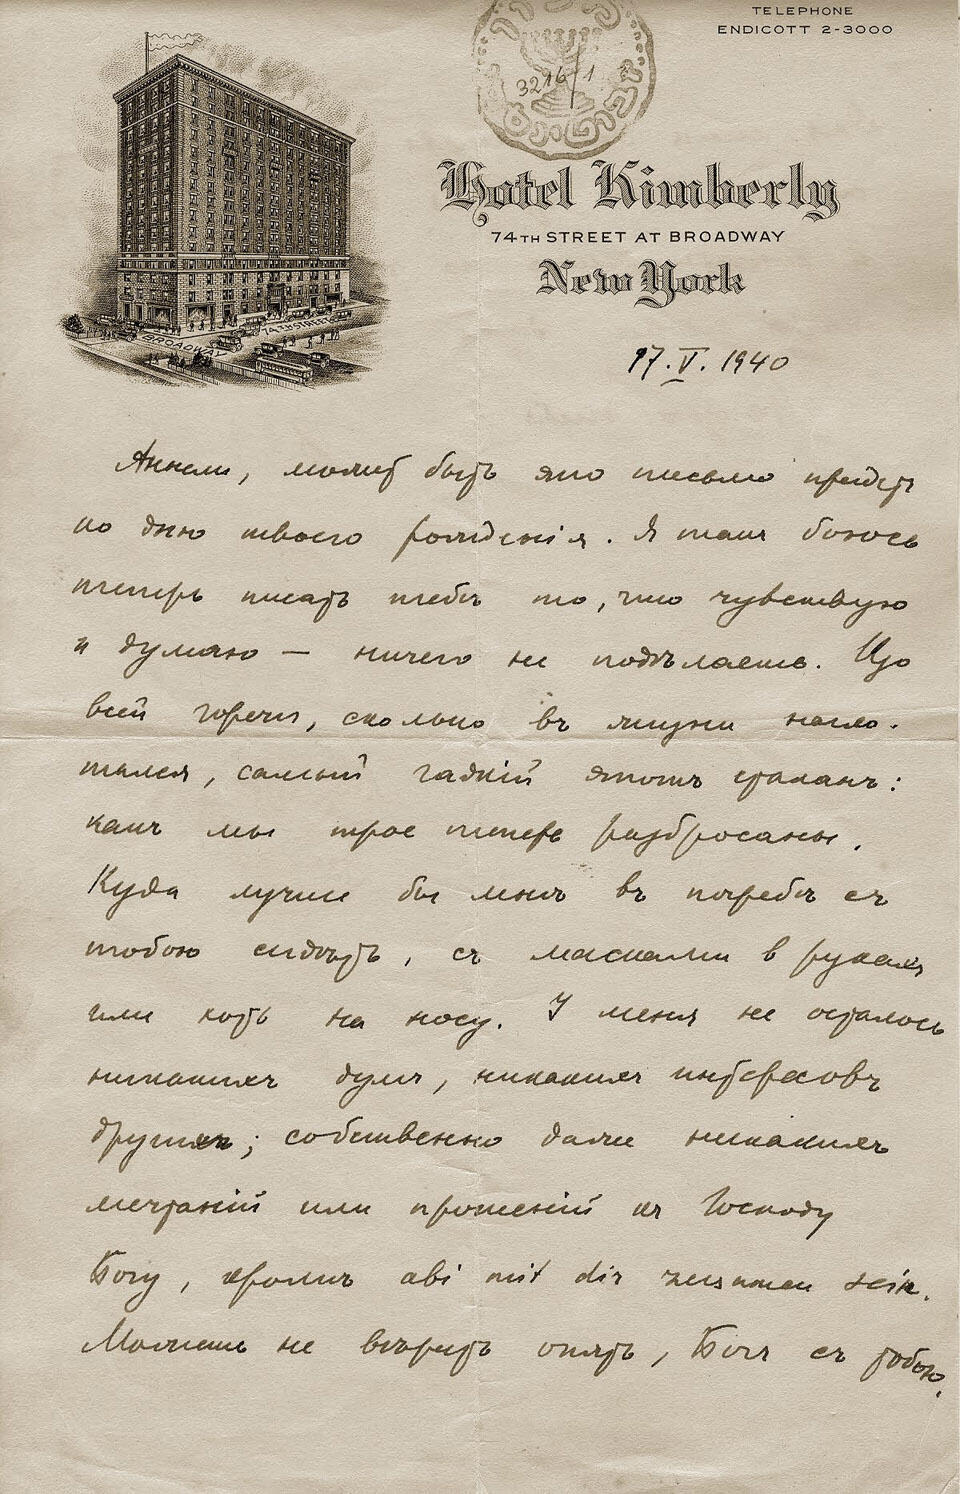 TELEPHONE
ENDICOTT 2-3000
3216/1
Hotel Kimberly
74TH STREET AT BROADWAY
New York
BROADWAY
74TH STREET
17.V.1940
Аннели, может быть это письмо придетъ
ко дню твоего рожденія. Я такъ боюсь
теперь писать тебѣ то, что чувствую
и думаю — ничего не подѣлаешь. Изо
всей горечи, сколько въ жизни нагло-
тался, самый гадкій этотъ стаканъ:
какъ мы трое теперь разбросаны.
Куда лучше бы мнѣ въ погребѣ съ
тобою сидѣть, съ масками в рукахъ
или хоть на носу. У меня не осталось
никакихъ думъ, никакихъ интересовъ
другихъ; собственно даже никакихъ
мечтаній или прошеній къ Господу
Богу, кромѣ mit dir zusammen sein.
Можешь не вѣрить опять, Богъ съ тобою.